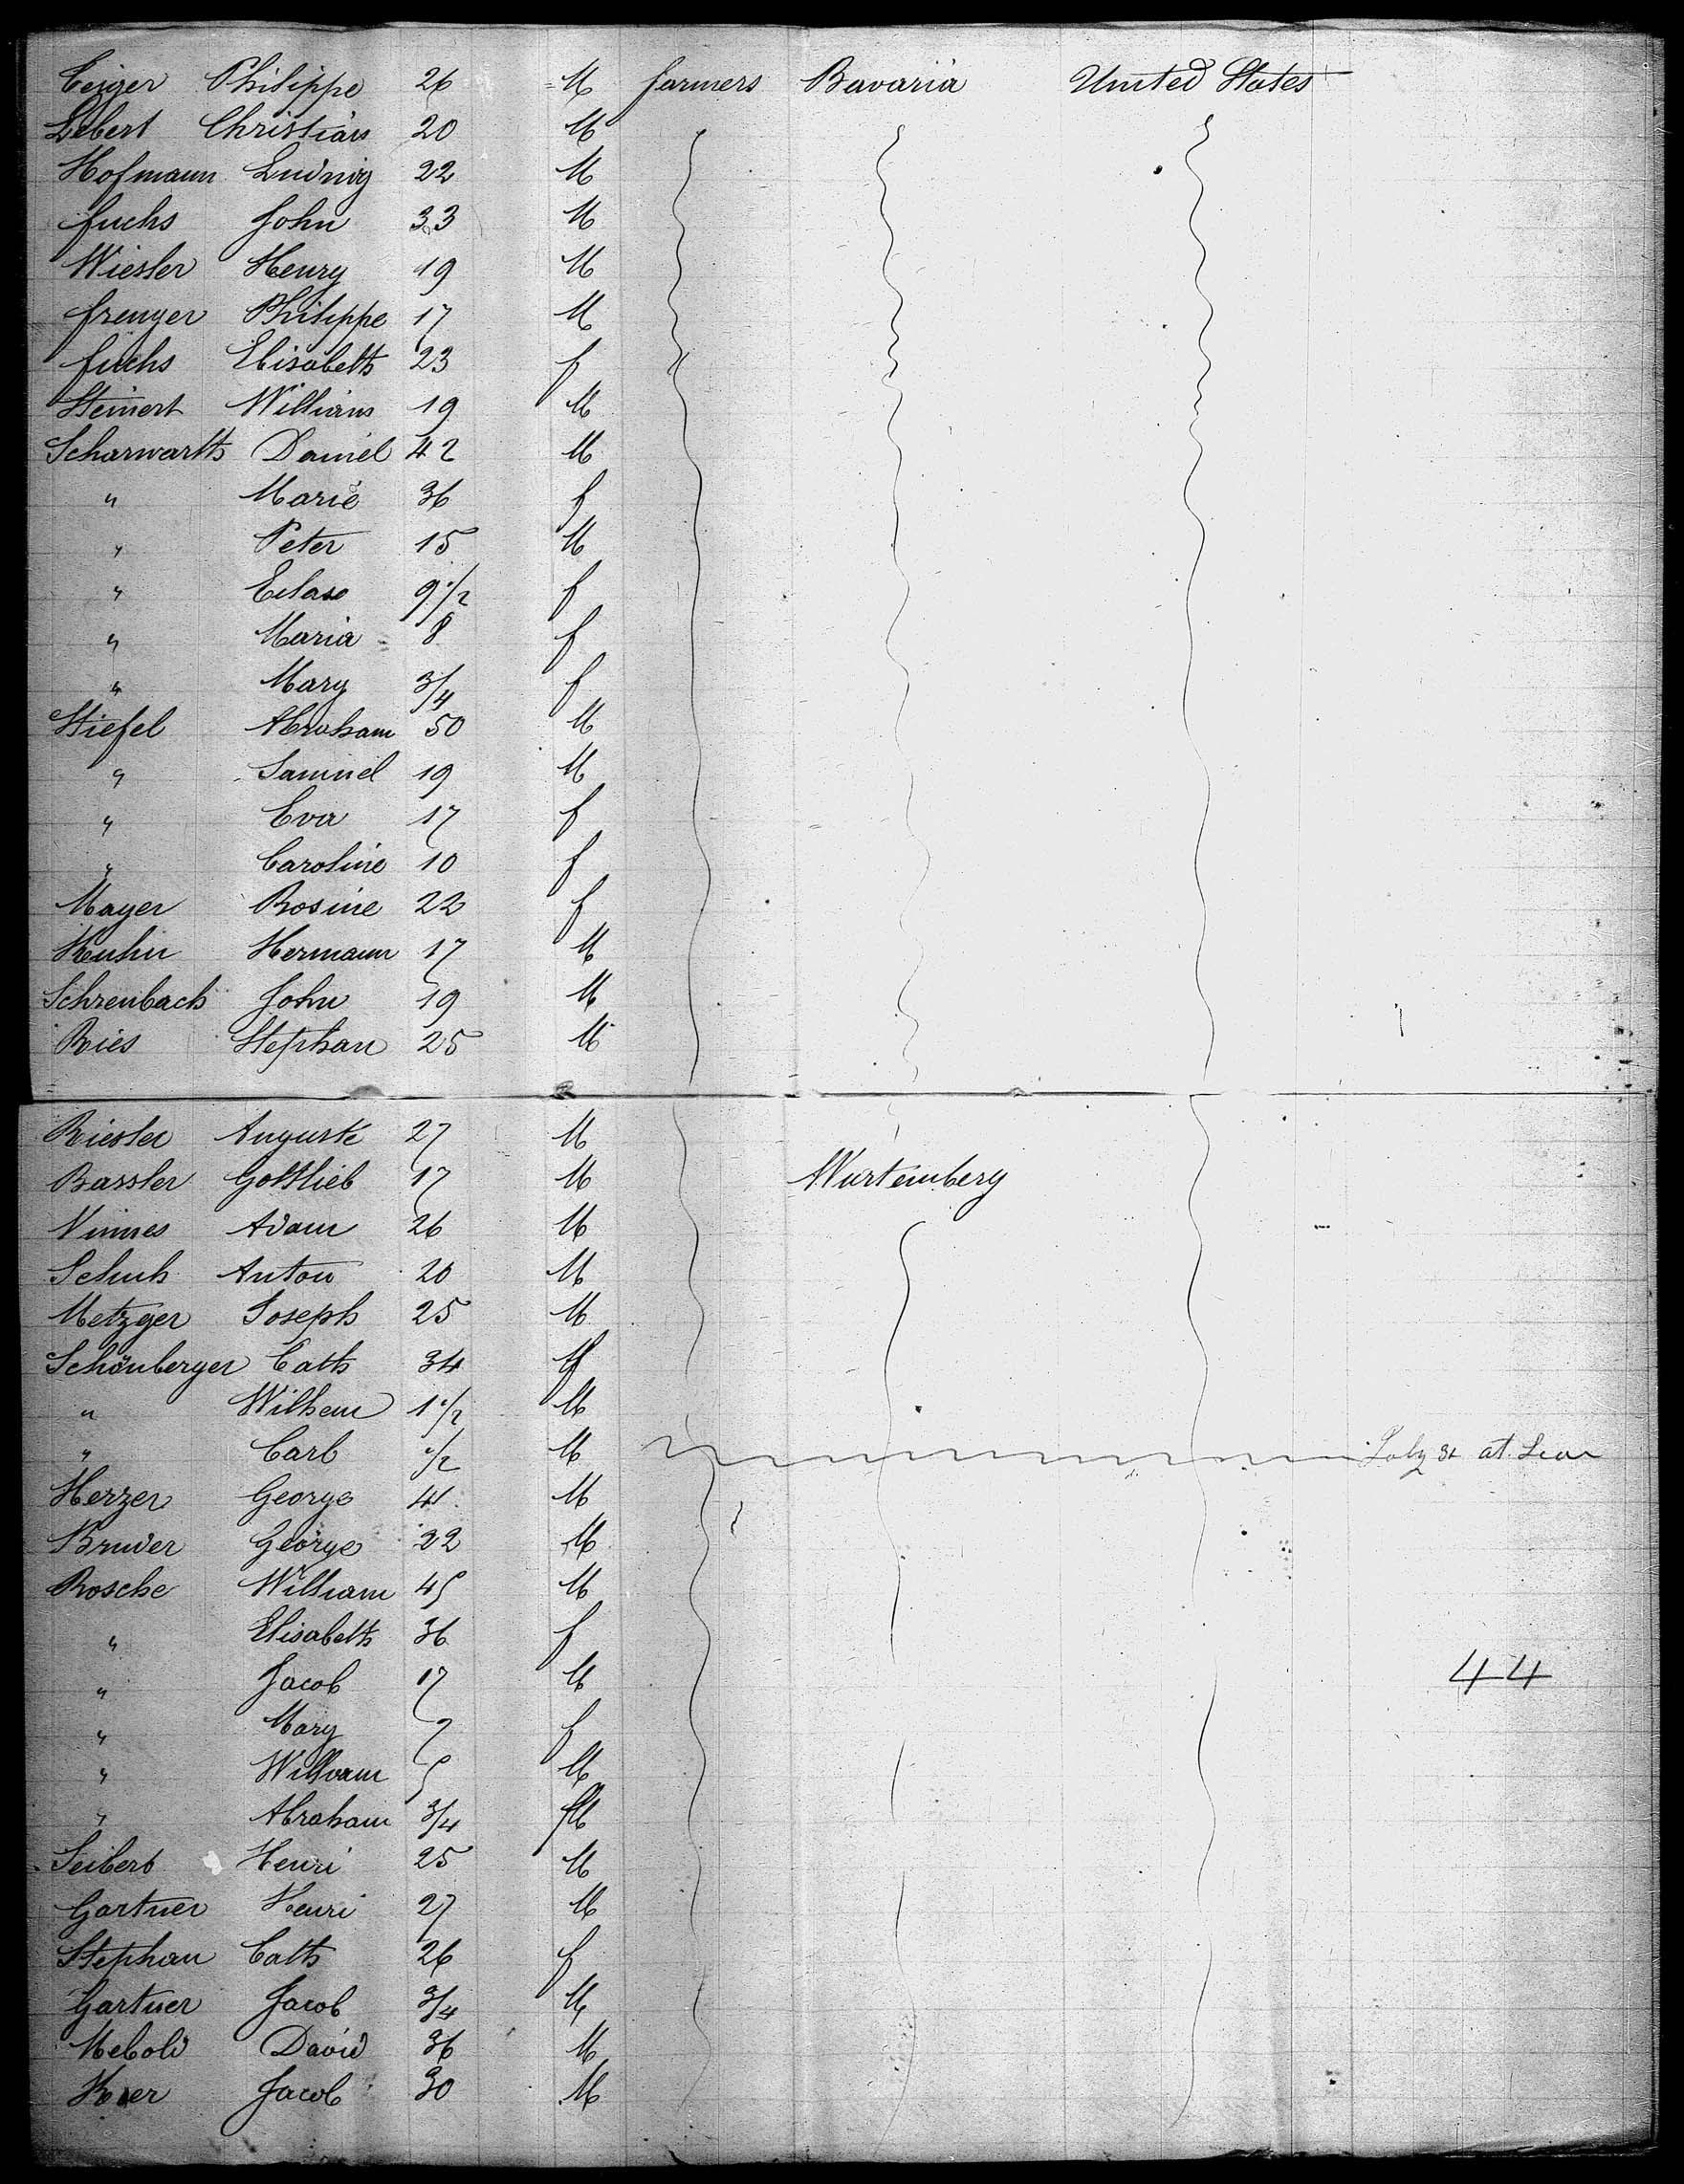 Ceiger Philippe 26 M farmers Bavaria United States
Lebert Christian 20 M
Hofmann Ludwig 22 M
fuchs John 33 M
Wiesler Henry 19 M
frenger Philippe 17 M
fuchs Elisabeth 23 f
Steinert William 19 M
Scharwarth Daniel 42 M
" Marie 36 f
" Peter 15 M
" 9 1/2 f
" Maria 8 f
" Mary 3/4 f
Stiefel Abraham 50 M
" Samuel 19 M
" Eva 17 f
" Caroline 10 f
Mayer Rosine 22 f
Kuhn Hermann 17 M
Schrenbach John 19 M
Ries Stephan 25 M
Riesler Auguste 27 M
Bassler Gottlieb 17 M Wurtemberg
Vinnes Adam 26 M
Schuh Anton 20 M
Metzger Joseph 25 M
Schönberger Cath 34 f
" Wilhem 1 1/2 M
" Carl 1/2 M July 31 at Sea
Herzer George 41 M
Bruder George 22 M
Rosche William 45 M
" Elisabeth 36 f
" Jacob 17 M 44
" Mary 7 f
" William 5 M
" Abraham 3/4 M
Seibert Henri 25 M
Gartner Henri 27 M
Stephan Cath 26 f
Gartner Jacob 3/4 M
Mebold David 36 M
Jacob 30 M